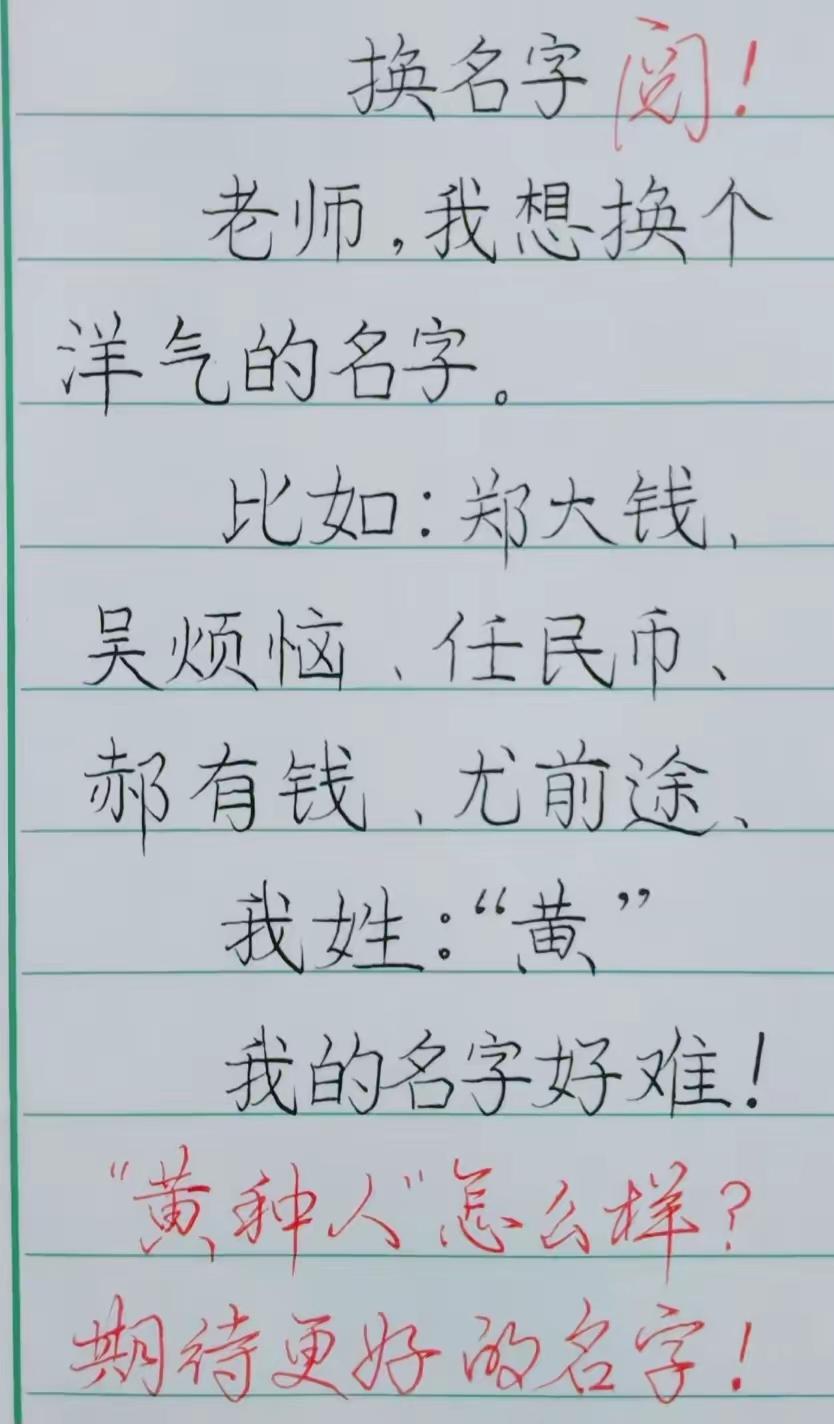 换名字 阅!
老师,我想换个
洋气的名字。
比如:郑大钱、
吴烦恼、任民币、
郝有钱、尤前途、
我姓:“黄”
我的名字好难!
“黄种人”怎么样?
期待更好的名字!